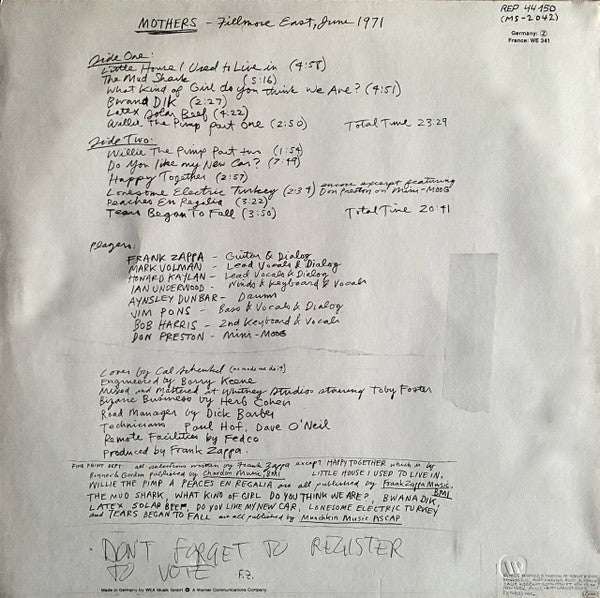 MOTHERS - Fillmore East, June 1971
REP 44150
(MS-2042)
Germany: Ⓩ
France: WE 341
Side One:
Little House I Used to Live in (4:58)
The Mud Shark (5:16)
What Kind of Girl do you think We Are? (4:51)
Bwana DIK (2:27)
Latex Solar Beef (4:22)
Willie The Pimp Part One (2:50) Total Time 23:29
Side Two:
Willie The Pimp Part two (1:54)
Do You like my New Car? (7:49)
Happy Together (2:57)
Lonesome Electric Turkey (2:34) encore excerpt featuring Don Preston on Mini-MOOG
Peaches En Regalia (3:22)
Tears Began To Fall (3:50) Total Time 20:41
Players:
FRANK ZAPPA - Guitar & Dialog
MARK VOLMAN - Lead Vocals & Dialog
HOWARD KAYLAN - Lead Vocals & Dialog
IAN UNDERWOOD - Winds & Keyboard & Vocals
AYNSLEY DUNBAR - Drums
JIM PONS - Bass & Vocals & Dialog
BOB HARRIS - 2nd Keyboard & Vocals
DON PRESTON - Mini-MOOG
Cover by Cal Schenkel (he made me do it)
Engineered by Barry Keene
Mixed and Mastered at Whitney Studios starring Toby Foster
Bizarre Business by Herb Cohen
Road Manager by Dick Barber
Technicians Paul Hof, Dave O'Neil
Remote Facilities by Fedco
Produced by Frank Zappa.
FINE PRINT DEPT: all selections written by Frank Zappa except HAPPY TOGETHER which is by
Bonner & Gordon Published by Chardon Music, BMI LITTLE HOUSE I USED TO LIVE IN,
WILLIE THE PIMP & PEACES EN REGALIA are all published by Frank Zappa Music, BMI
THE MUD SHARK, WHAT KIND OF GIRL DO YOU THINK WE ARE?, BWANA DIK,
LATEX SOLAR BEEF, DO YOU LIKE MY NEW CAR, LONESOME ELECTRIC TURKEY,
and TEARS BEGAN TO FALL are all published by Munchkin Music ASCAP
DON'T FORGET TO REGISTER
TO VOTE F.Z.
Made in Germany by WEA Musik GmbH A Warner Communications Company